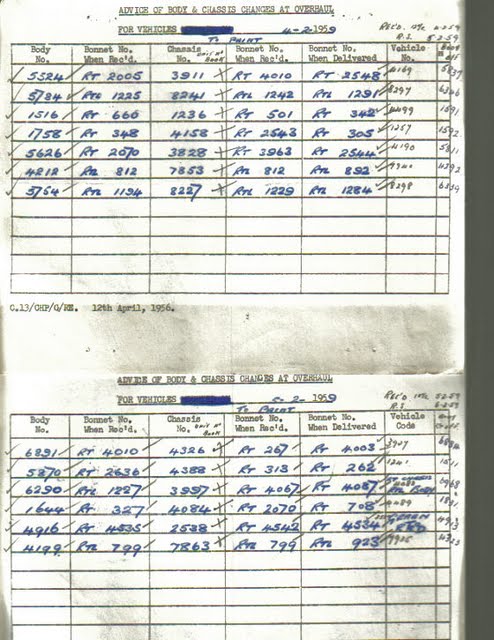 ADVICE OF BODY & CHASSIS CHANGES AT OVERHAUL
FOR VEHICLES 4-2-1959 REC'D. 4-2-59
TO PAINT R.S. 5-2-59
Body No. Bonnet No. When Rec'd. Chassis No. Unit No Book Bonnet No. When Rec'd. Bonnet No. When Delivered Vehicle No.
5524 RT 2005 3911 RT 4010 RT 2548
5784 RTL 1225 8241 RTL 1242 RTL 1291
1516 RT 666 1236 RT 501 RT 342
1758 RT 348 4158 RT 2543 RT 305 1592
5626 RT 2070 3828 RT 3963 RT 2544 4190
4812 RTL 812 7853 RTL 812 RTL 892
5754 RTL 1194 8227 RTL 1229 RTL 1284 8298
C.13/CHP/G/RE. 12th April, 1956.
ADVICE OF BODY & CHASSIS CHANGES AT OVERHAUL
FOR VEHICLES 5-2-1959 REC'D 5-2-59
TO PAINT R.S. 6-2-59
Body No. Bonnet No. When Rec'd. Chassis No. Unit No Book Bonnet No. When Rec'd. Bonnet No. When Delivered Vehicle Code
6891 RT 4010 4326 RT 267 RT 4003
5870 RT 2636 4388 RT 313 RT 262
6290 RTL 1227 3997 RT 4067 RT 4087
1644 RT 327 4084 RT 2070 RT 708
4916 RT 4535 2538 RT 4542 RT 4534
4199 RTL 799 7863 RTL 799 RTL 923